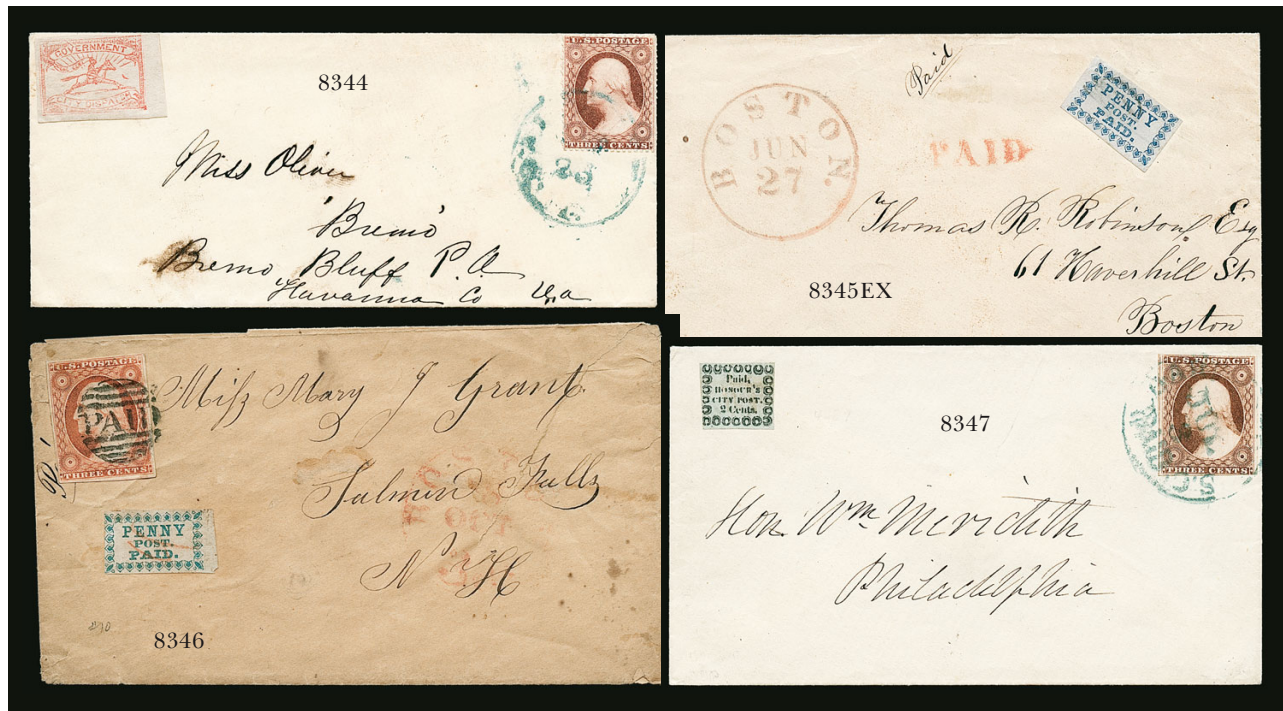 GOVERNMENT
CITY DISPATCH
8344
U.S. POSTAGE
THREE CENTS
23
Miss Oliver
'Bremo'
Bremo Bluff P.O.
Havanna Co Va
Paid
BOSTON.
JUN
27
PAID
PENNY
POST.
PAID.
Thomas R. Robinson Esq
61 Haverhill St.
Boston
8345EX
U.S. POSTAGE
THREE CENTS
PAID
Miss Mary J Grant
Salmin Falls
N H
OCT
PENNY
POST.
PAID.
8346
Paid,
HONOUR'S
CITY POST.
2 Cents.
8347
U.S. POSTAGE
THREE CENTS
Hon. Wm Meridith
Philadelphia